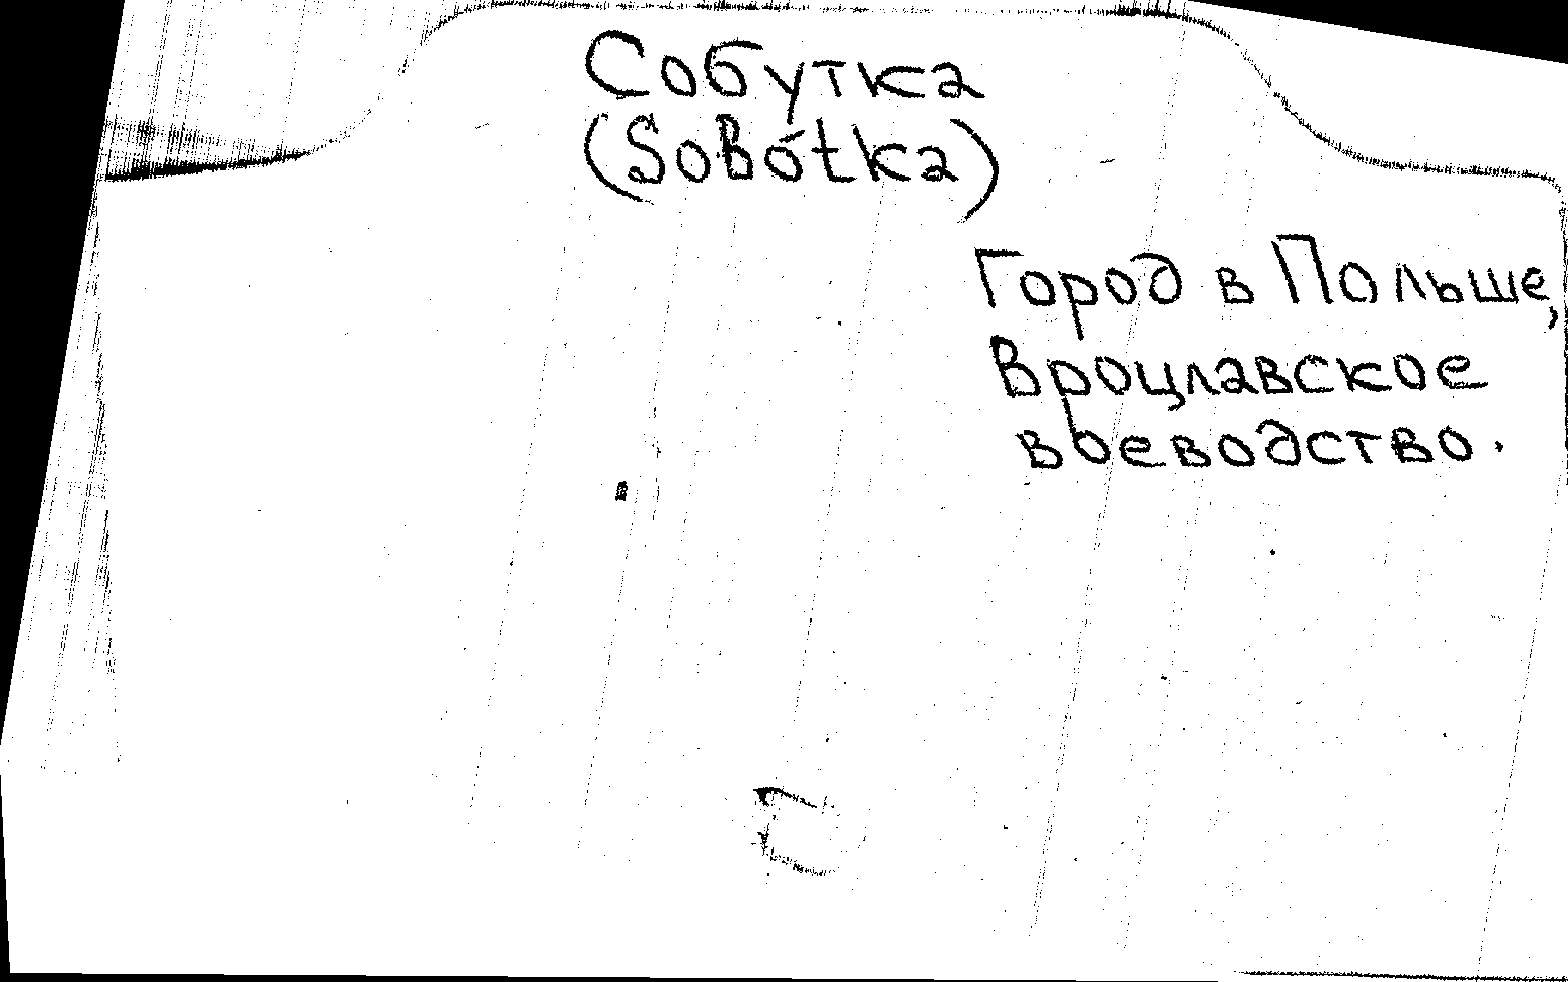 Собутка
(Sobótka)
Город в Польше,
Вроцлавское
воеводство.